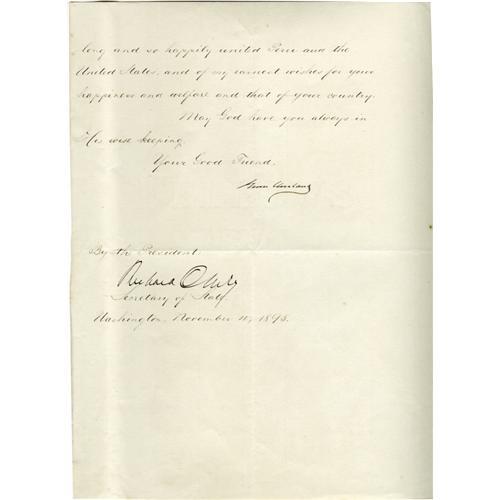 long and so happily united Peru and the
United States, and of my earnest wishes for your
happiness and welfare and that of your country.
May God have you always in
His wise keeping.
Your Good Friend,
Grover Cleveland
By the President:
Richard Olney
Secretary of State.
Washington, November 11, 1895.